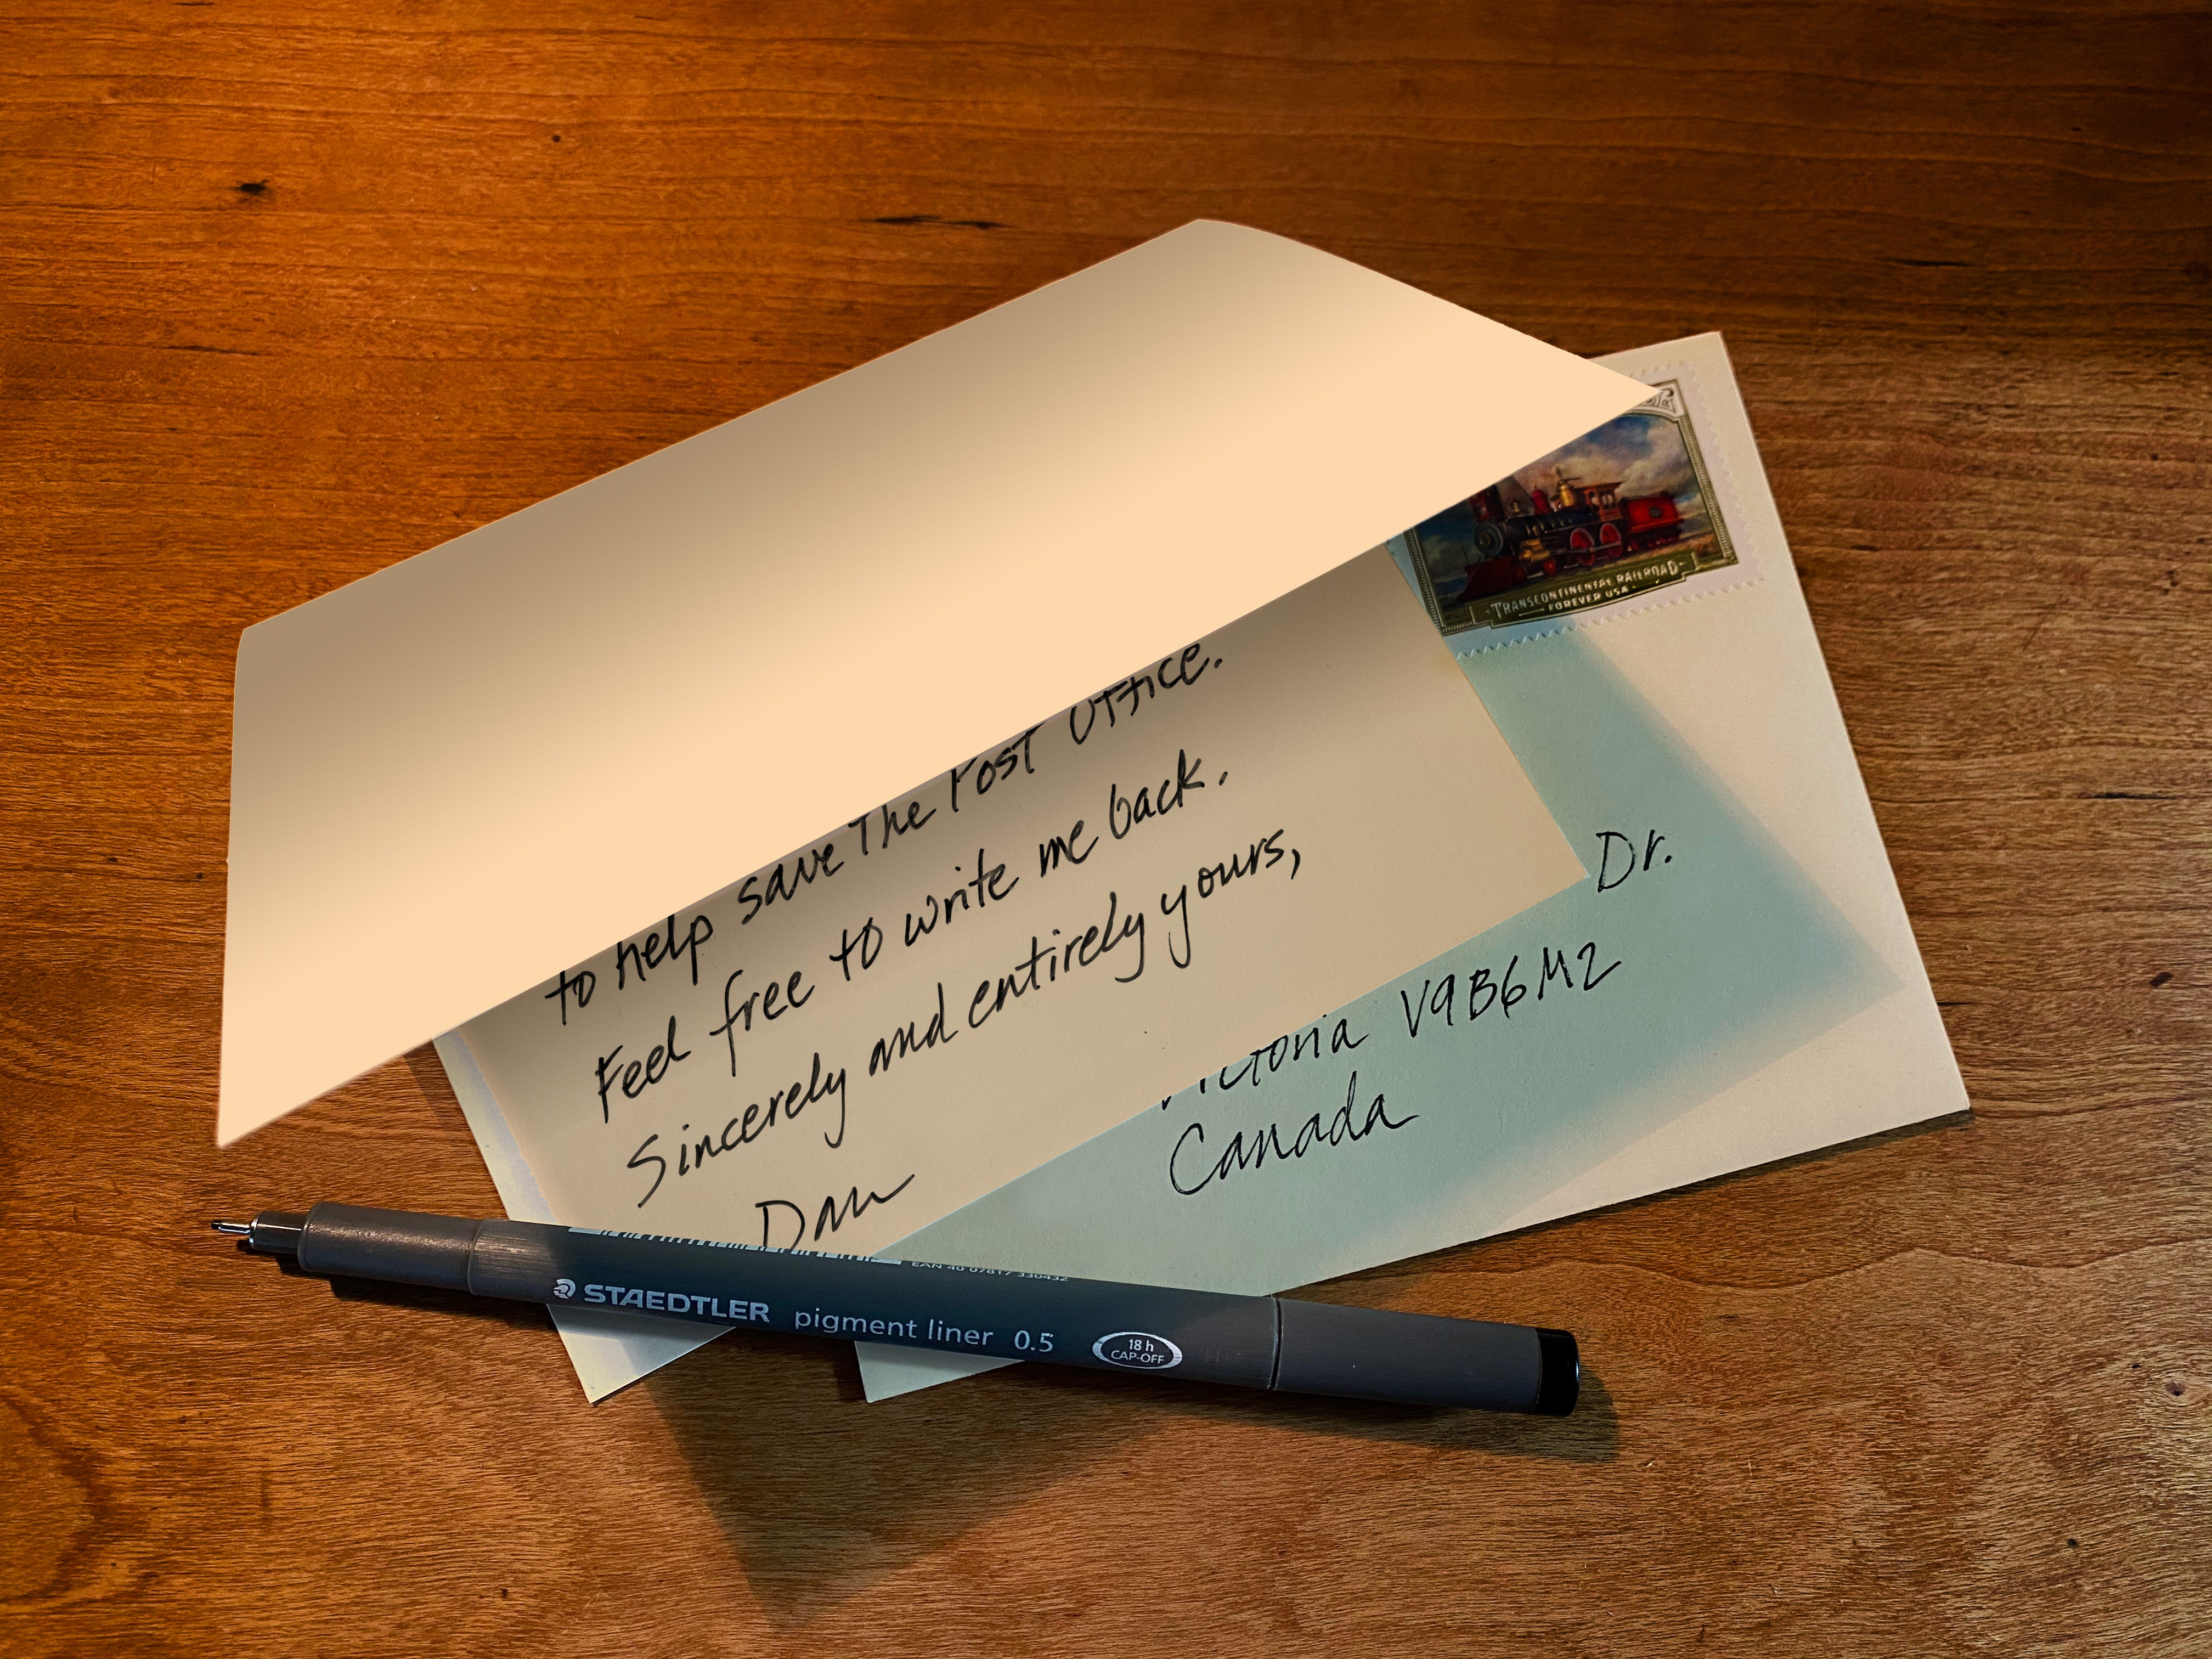 to help save The Post Office.
Feel free to write me back.
Sincerely and entirely yours,
Dan
TRANSCONTINENTAL RAILROAD
FOREVER USA
Dr.
Victoria V9B6M2
Canada
EAN 40 07817 330432
STAEDTLER pigment liner 0.5
18 h
CAP-OFF